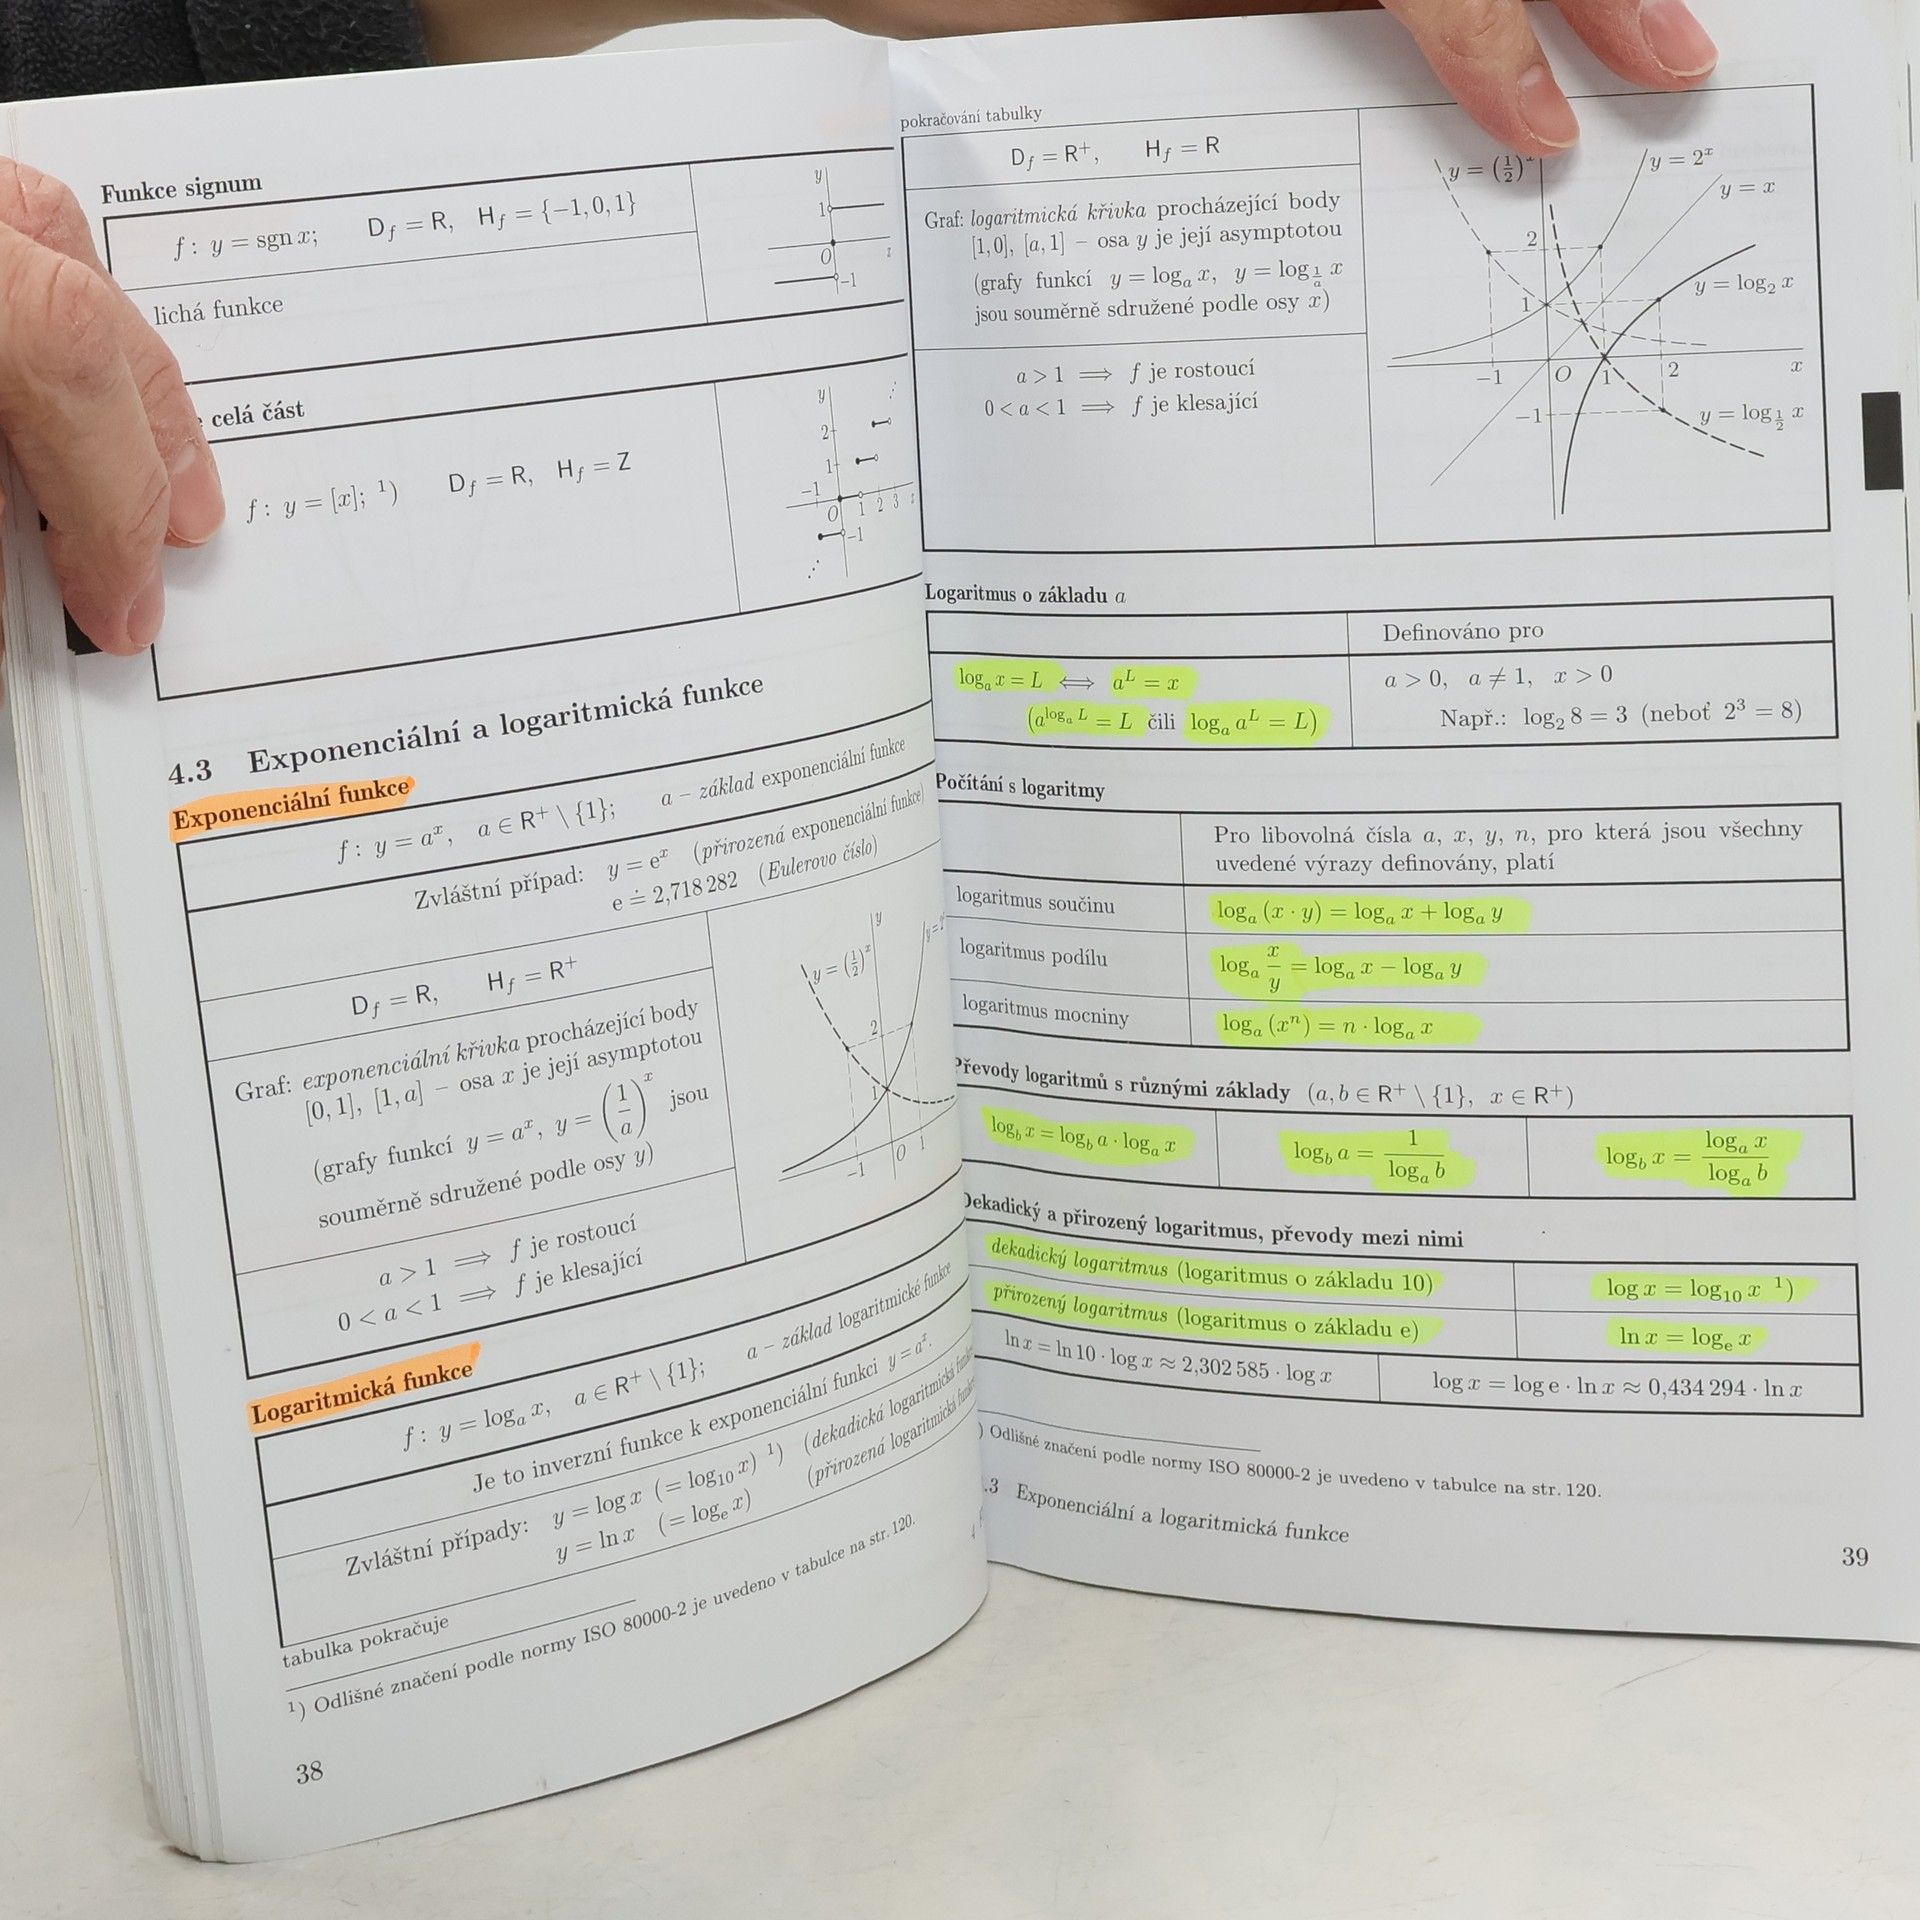 Funkce signum
f: y = sgn x; D_f = R, H_f = {−1, 0, 1}
lichá funkce
y
1
O
x
−1
celá část
f: y = [x]; ¹) D_f = R, H_f = Z
y
2
1
−1
O 1 2 3 x
−1
4.3 Exponenciální a logaritmická funkce
Exponenciální funkce
f: y = aˣ, a ∈ R⁺ \ {1}; a – základ exponenciální funkce
Zvláštní případ: y = eˣ (přirozená exponenciální funkce)
e ≐ 2,718 282 (Eulerovo číslo)
D_f = R, H_f = R⁺
Graf: exponenciální křivka procházející body
[0, 1], [1, a] – osa x je její asymptotou
(grafy funkcí y = aˣ, y = (1/a)ˣ jsou
souměrně sdružené podle osy y)
a > 1 ⟹ f je rostoucí
0 < a < 1 ⟹ f je klesající
y
y = (1/2)ˣ
2
1
−1 O 1
Logaritmická funkce
f: y = logₐ x, a ∈ R⁺ \ {1}; a – základ logaritmické funkce
Je to inverzní funkce k exponenciální funkci y = aˣ.
Zvláštní případy: y = log x (= log₁₀ x) ¹) (dekadická logaritmická
y = ln x (= logₑ x) (přirozená logaritmická
tabulka pokračuje
¹) Odlišné značení podle normy ISO 80000-2 je uvedeno v tabulce na str. 120.
38
pokračování tabulky
D_f = R⁺, H_f = R
Graf: logaritmická křivka procházející body
[1, 0], [a, 1] – osa y je její asymptotou
(grafy funkcí y = logₐ x, y = log_{1/a} x
jsou souměrně sdružené podle osy x)
a > 1 ⟹ f je rostoucí
0 < a < 1 ⟹ f je klesající
y = (1/2)ˣ
y = 2ˣ
y = x
2
1
y = log₂ x
−1 O 1 2 x
−1
y = log_{1/2} x
Logaritmus o základu a
Definováno pro
logₐ x = L ⟺ aᴸ = x
a > 0, a ≠ 1, x > 0
(a^{logₐ L} = L čili logₐ aᴸ = L)
Např.: log₂ 8 = 3 (neboť 2³ = 8)
Počítání s logaritmy
Pro libovolná čísla a, x, y, n, pro která jsou všechny
uvedené výrazy definovány, platí
logaritmus součinu logₐ (x · y) = logₐ x + logₐ y
logaritmus podílu logₐ x/y = logₐ x − logₐ y
logaritmus mocniny logₐ (xⁿ) = n · logₐ x
Převody logaritmů s různými základy (a, b ∈ R⁺ \ {1}, x ∈ R⁺)
log_b x = log_b a · logₐ x
log_b a = 1/logₐ b
log_b x = logₐ x/logₐ b
Dekadický a přirozený logaritmus, převody mezi nimi
dekadický logaritmus (logaritmus o základu 10) log x = log₁₀ x ¹)
přirozený logaritmus (logaritmus o základu e) ln x = logₑ x
ln x = ln 10 · log x ≈ 2,302 585 · log x
log x = log e · ln x ≈ 0,434 294 · ln x
) Odlišné značení podle normy ISO 80000-2 je uvedeno v tabulce na str. 120.
.3 Exponenciální a logaritmická funkce
39